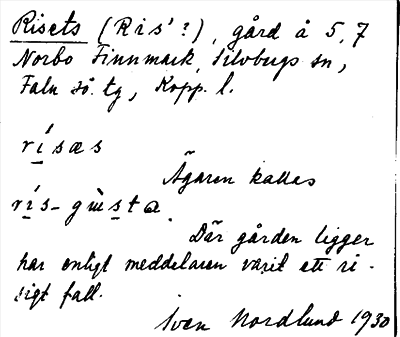 Risets (Ris'?), gård å 5,7
Norbo Finnmark, Silvbergs sn,
Falu sö. tg, Kopp. l.
rísæs
Ägaren kallas
rís-gùsta.
Där gården ligger
har enligt meddelaren varit ett ri-
sigt fall.
Sven Nordlund 1930